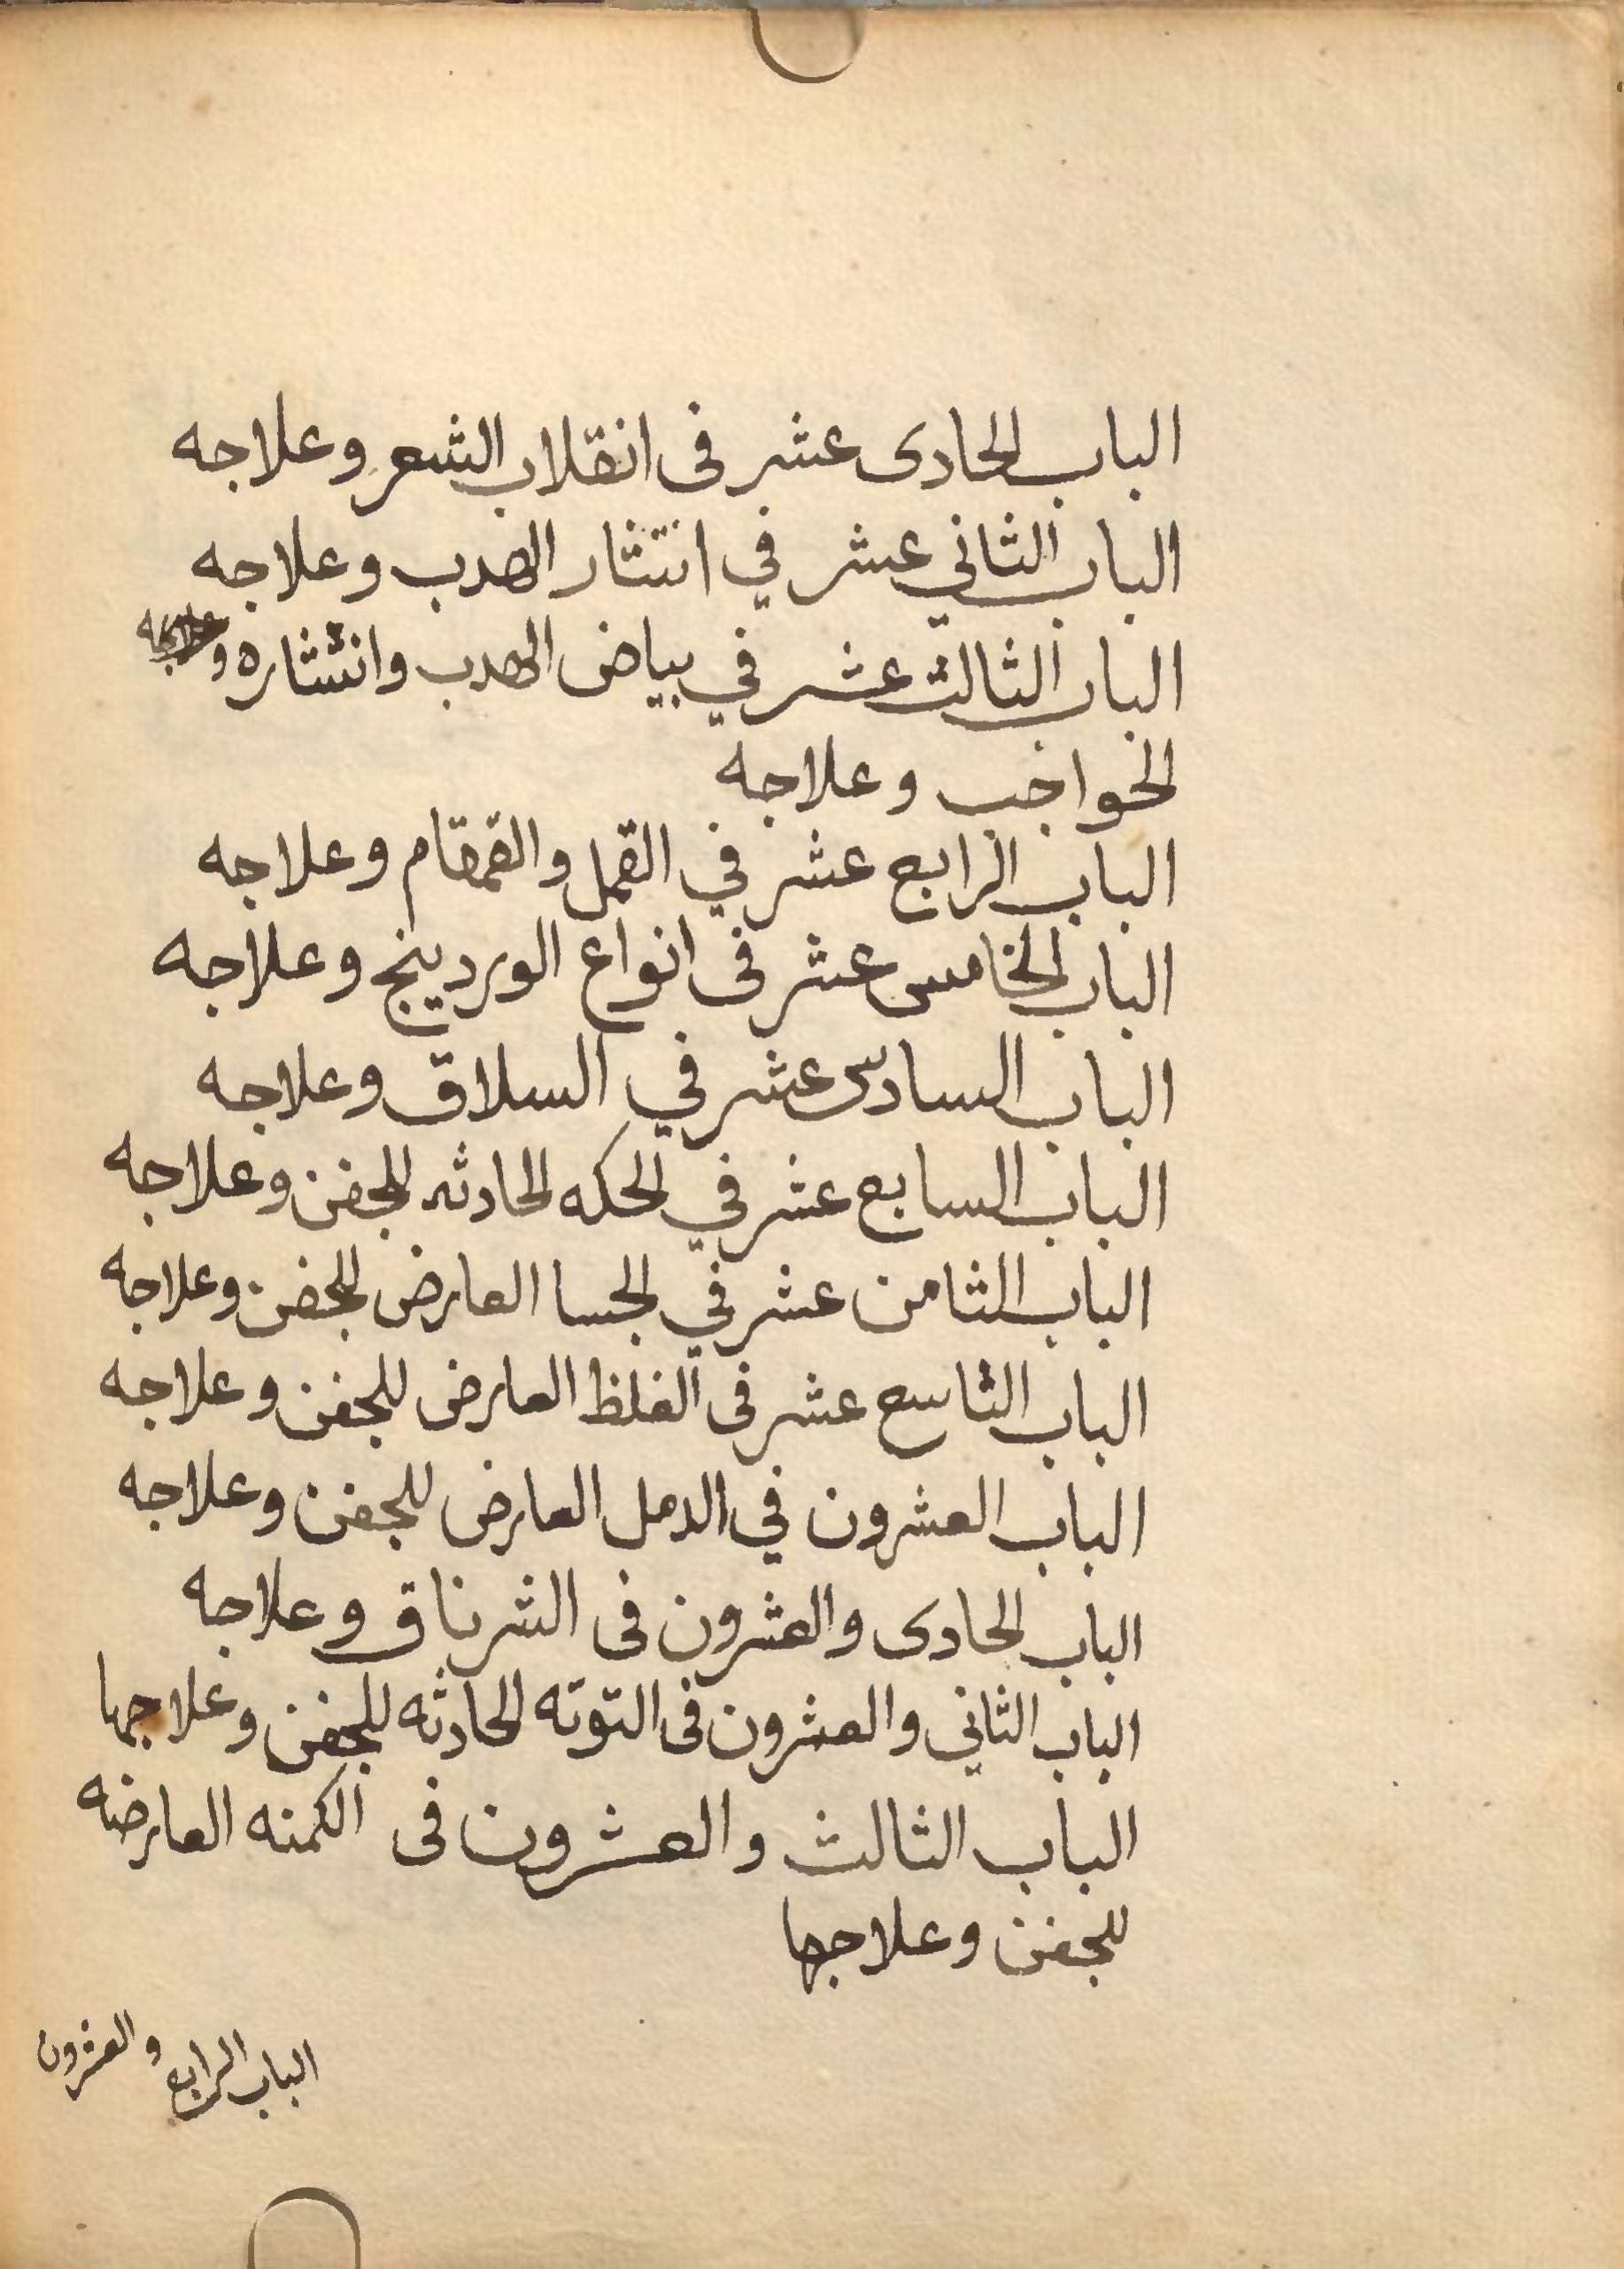 الباب الحادى عشر فى انقلاب الشعر وعلاجه
الباب الثاني عشر في انتثار الهدب وعلاجه
الباب الثالث عشر في بياض الهدب وانتثاره و
الخواخب وعلاجه
الباب الرابع عشر في القمل والقمقام وعلاجه
الباب الخامس عشر فى انواع الوردينج وعلاجه
الباب السادس عشر في السلاق وعلاجه
الباب السابع عشر في الحكه الحادثه للجفن وعلاجه
الباب الثامن عشر في الجسا العارض للجفن وعلاجه
الباب التاسع عشر فى الغلظ العارض للجفن وعلاجه
الباب العشرون في الدمل العارض للجفن وعلاجه
الباب الحادى والعشرون فى الشرناق وعلاجه
الباب الثاني والعشرون فى التوته الحادثه للجفن وعلاجها
الباب الثالث والعشرون فى الكمنه العارضه
للجفن وعلاجها
الباب الرابع والعشرون